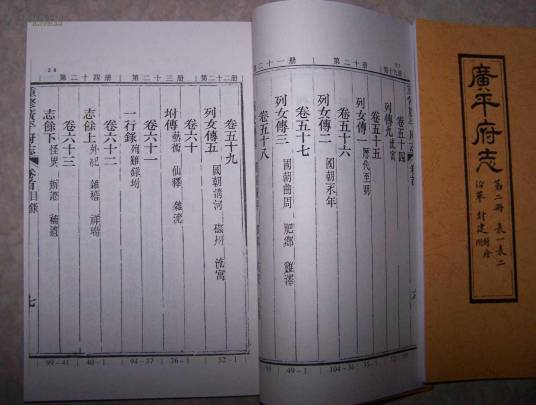 廣平府志
第二册 表一 表二
沿革 封建
第二十一册
第二十册
第十九册
卷五十四
列傳九 流寓
卷五十五
列女傳一 歷代至明
卷五十六
列女傳二 國朝永年
卷五十七
列女傳三 國朝曲周 肥鄉 雞澤
卷五十八
49-1
第二十四册
第二十三册
第二十二册
卷五十九
列女傳五 國朝清河 磁州 流寓
卷六十
坿傳 藝術 仙釋 雜流
卷六十一
一行錄 殉難錄坿
卷六十二
志餘上 外祀 雜稽 祥瑞
卷六十三
卷首 目錄
七
99-41
40-1
94-37
76-1
52-1